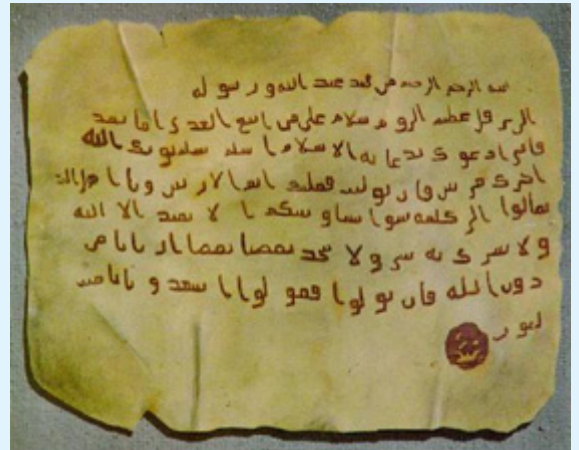 بسم الله الرحمن الرحيم من محمد عبد الله ورسوله
الى هرقل عظيم الروم سلام على من اتبع الهدى اما بعد
فاني ادعوك بدعاية الاسلام اسلم تسلم يوتك الله
اجرك مرتين فان توليت فعليك اثم الاريسيين ويا اهل
تعالوا الى كلمة سوا بيننا وبينكم الا نعبد الا الله
ولا نشرك به ولا يتخذ بعضنا بعضا اربابا من
دون الله فان تولوا فقولوا اشهدوا بانا مس
لمون